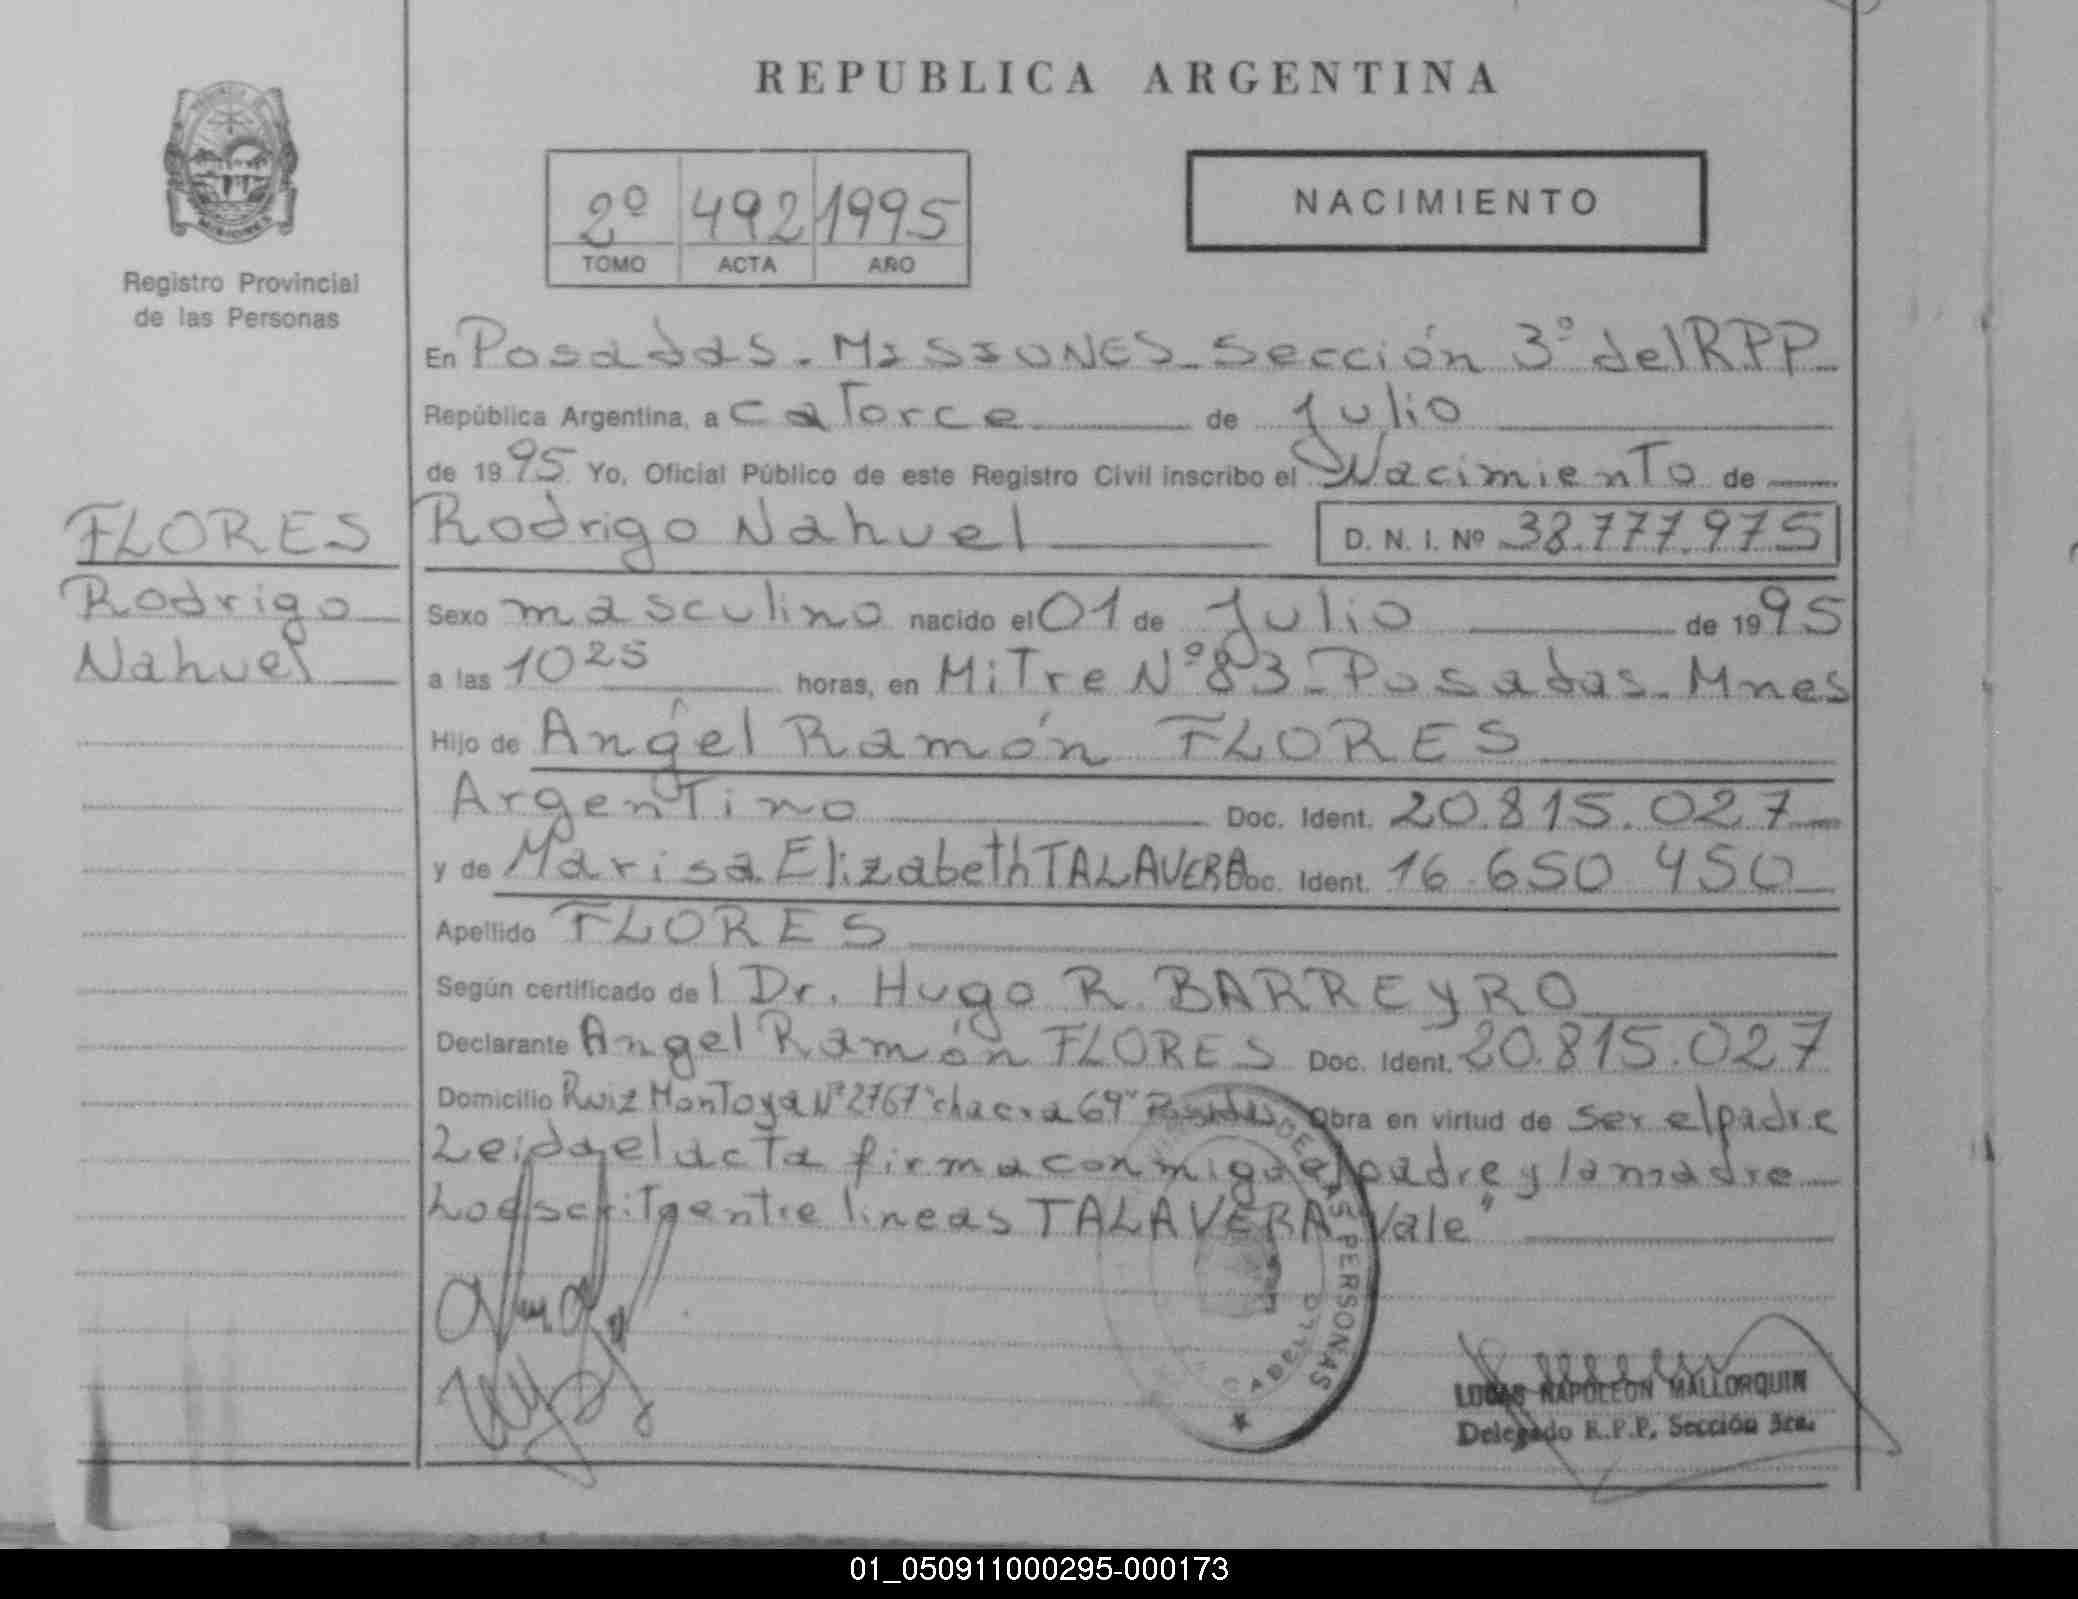 REPUBLICA ARGENTINA
NACIMIENTO
2º 492 1995
TOMO ACTA AÑO
Registro Provincial
de las Personas
FLORES
Rodrigo
Nahuel
En Posadas - MISIONES - Sección 3º del R.P.P.
República Argentina, a catorce de Julio
de 1995 Yo, Oficial Público de este Registro Civil inscribo el Nacimiento de
Rodrigo Nahuel D. N. I. Nº 38.777.975
Sexo masculino nacido el 01 de Julio de 1995
a las 10 25 horas, en Mitre Nº 83 - Posadas - Mnes
Hijo de Angel Ramón FLORES
Argentino Doc. Ident. 20.815.027
y de Marisa Elizabeth TALAVERA Doc. Ident. 16.650.450
Apellido FLORES
Según certificado del Dr. Hugo R. BARREYRO
Declarante Angel Ramón FLORES Doc. Ident. 20.815.027
Domicilio Ruiz Montoya Nº 2767 "chacra 69" Posadas Obra en virtud de ser el padre
Leida el acta firma conmigo el padre y la madre
Lo escrito entre lineas TALAVERA "Vale"
DE LAS PERSONAS
LUCAS NAPOLEON MALLORQUIN
Delegado R.P.P. Sección 3ra.
01_050911000295-000173